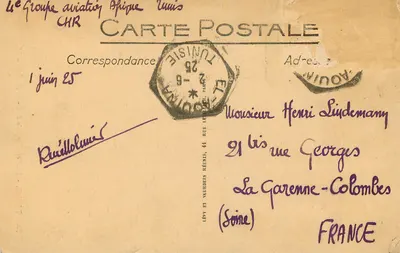 4e Groupe aviation Afrique Tunis
CHR
CARTE POSTALE
Correspondance
Adresse
EL-AOUINA
TUNISIE
2-6
25
AOUINA
1 juin 25
Monsieur Henri Lindemann
21 bis rue Georges
La Garenne-Colombes
(Seine)
FRANCE
LÉVY ET NEURDEIN RÉUNIS, 44 RUE